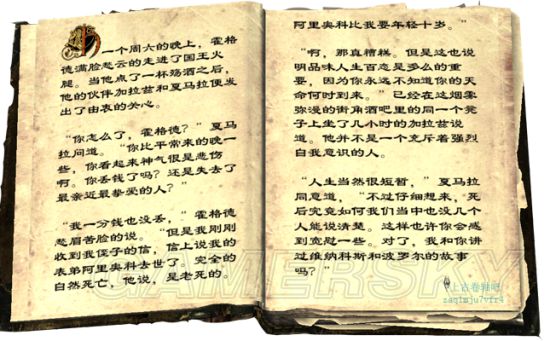 一个周六的晚上，霍格
德满脸愁云的走进了国王火
腿。当他点了一杯烈酒之后，
他的伙伴加拉兹和夏马拉便发
出了由衷的关心。
“你怎么了，霍格德？” 夏马
拉问道。 “你比平常来的晚一
些，你看起来神气很是悲伤
啊。你丢钱了吗？还是失去了
最亲近最挚爱的人？”
“我一分钱也没丢，” 霍格德
愁眉苦脸的说。 “但是我刚刚
收到我侄子的信，信上说我的
表弟阿里奥科去世了。完全的
自然死亡，他说，是老死的。
阿里奥科比我要年轻十岁。”
“啊，那真糟糕。但是这也说
明品味人生百态是多么的重
要，因为你永远不知道你的天
命何时到来。” 已经在这烟雾
弥漫的街角酒吧里的同一个凳
子上坐了几小时的加拉兹说
道。他并不是一个充斥着强烈
自我意识的人。
“人生当然很短暂，” 夏马拉
同意道， “不过仔细想来，死
后究竟如何我们当中也没几个
人能说清楚。这样也许你会感
到宽慰一些。对了，我和你讲
过维纳科斯和波罗尔的故事
吗？”
GAMERSKY
@上古卷轴吧
zaq1mju7vfr4